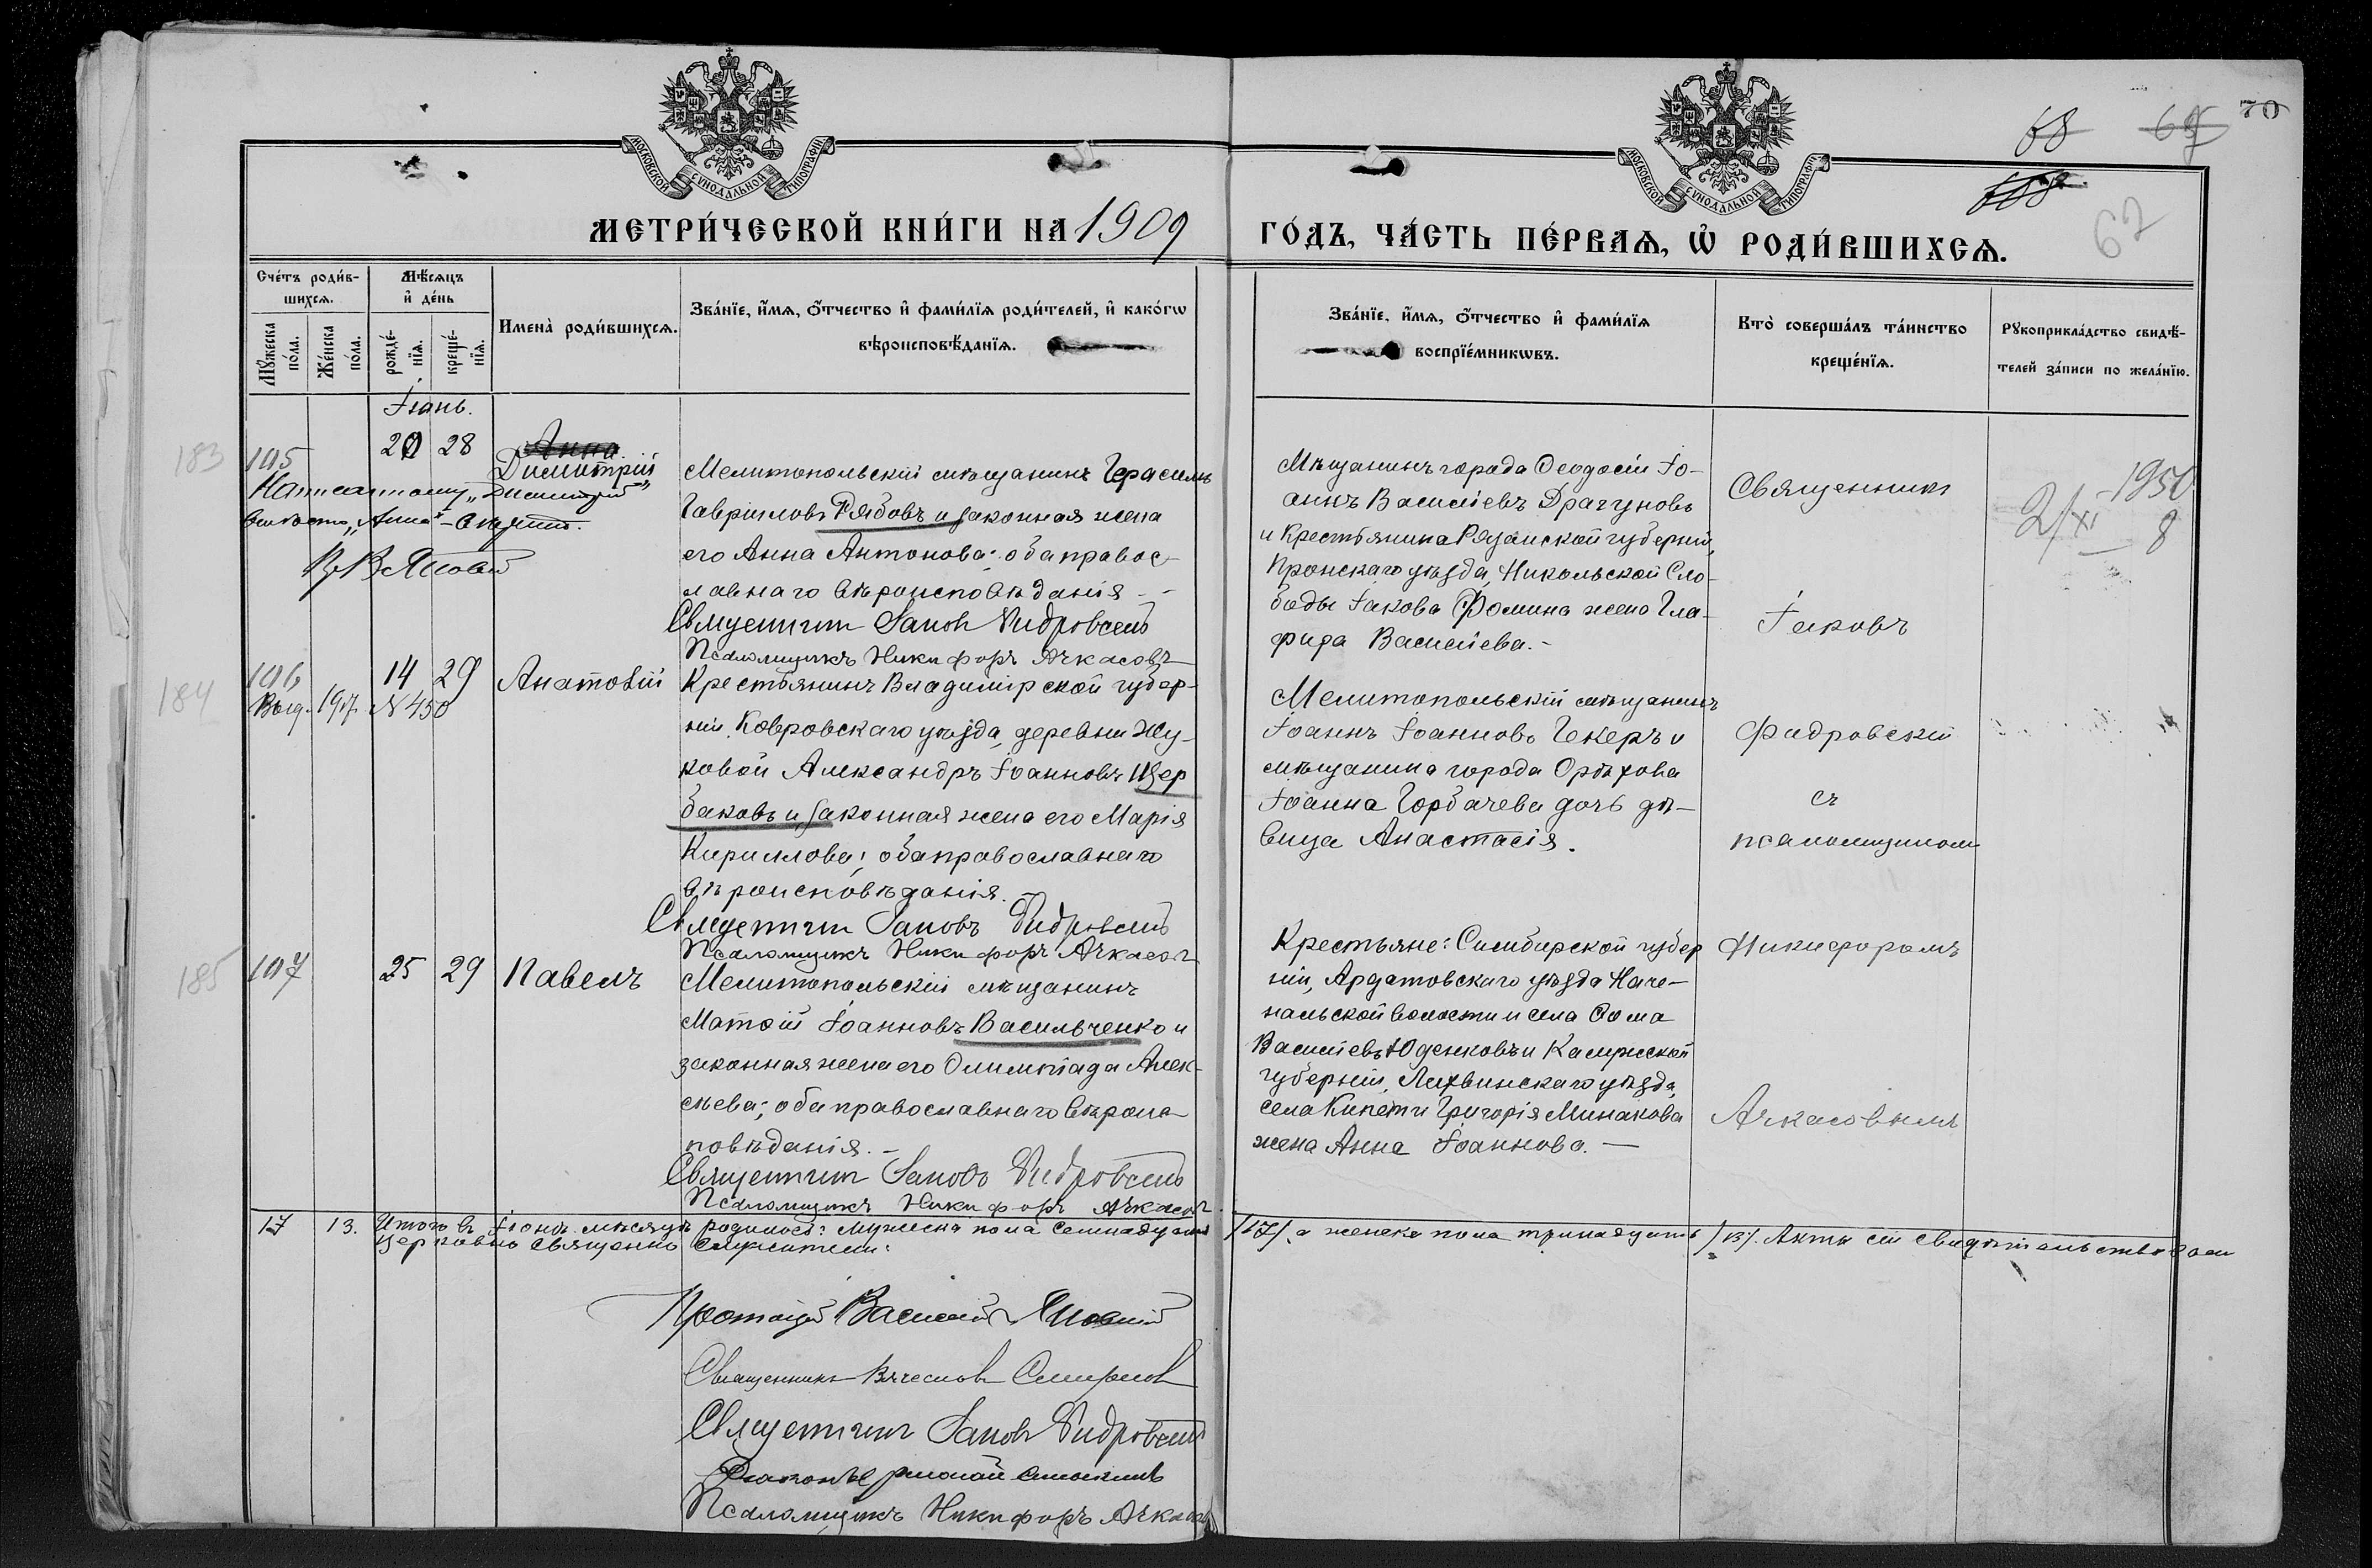 68 69 70
67
МОСКОВСКОЙ СѴНОДАЛЬНОЙ ТИПОГРАФІИ
МОСКОВСКОЙ СѴНОДАЛЬНОЙ ТИПОГРАФІИ
МЕТРИ́ЧЕСКОЙ КНИ́ГИ НА 1909
ГО́ДЪ, ЧА́СТЬ ПЕ́РВАѦ, Ѡ҆ РОДИ́ВШИХСѦ.
Сче́тъ роди́в-
шихсѧ.
Мꙋ́жеска по́ла.
Же́нска по́ла.
Мѣ́сѧцъ
и҆ де́нь
рожде́-нїѧ.
креще́-нїѧ.
Имена̀ роди́вшихсѧ.
Зва́нїе, и҆́мѧ, ѻ҆́тчество и҆ фами́лїѧ роди́телей, и҆ како́гѡ
вѣроисповѣ́данїѧ.
Зва́нїе, и҆́мѧ, ѻ҆́тчество и҆ фами́лїѧ
воспрїе́мникѡвъ.
Кто̀ соверша́лъ та́инство
креще́нїѧ.
Рꙋкоприкла́дство свидѣ́-
телей за́писи по жела́нїю.
Іюнь.
183 105 20 28 Анна.
Димитрій
Написанному „Димитрій"
вмѣсто „Анна" – вѣрить.
Мелитопольскій мѣщанинъ Герасимъ
Гавріиловъ Рябовъ и законная жена
его Анна Антонова; оба правос-
лавнаго вѣроисповѣданія. –
Священникъ Іаковъ Фидровскій
Псаломщикъ Никифоръ Ачкасовъ
Мѣщанинъ города Ѳеодосіи Іо-
аннъ Василіевъ Драгуновъ
и Крестьянина Рязанской губерніи,
Пронскаго уѣзда, Никольской Сло-
боды Іакова Фомина жена Гла-
фира Василіева. –
Священникъ
Іаковъ
2/XI – 1950
8
184 106 14 29 Анатолій
Выд. 1917. N 450
Крестьянинъ Владимірской губер-
ніи, Ковровскаго уѣзда, деревни Жу-
ковой Александръ Іоанновъ Щер
баковъ и законная жена его Марія
Кириллова; оба православнаго
вѣроисповѣданія.
Священникъ Іаковъ Фидровскій
Псаломщикъ Никифоръ Ачкасовъ
Мелитопольскій мѣщанинъ
Іоаннъ Іоанновъ Гекеръ и
мѣщанина города Орѣхова
Іоанна Горбачева дочь дѣ-
вица Анастасія.
Фидровскій
съ
псаломщикомъ
185 107 25 29 Павелъ
Мелитопольскій мѣщанинъ
Матѳій Іоанновъ Васильченко и
законная жена его Олимпіада Алек-
сѣева; оба православнаго вѣроис-
повѣданія. –
Священникъ Іаковъ Фидровскій
Псаломщикъ Никифоръ Ачкасовъ
Крестьяне: Симбирской губер
ніи, Ардатовскаго уѣзда Наче-
нальской волости и села Ѳома
Василіевъ Юденковъ и Калужской
губерніи, Лихвинскаго уѣзда,
села Кипети Григорія Минакова
жена Анна Іоаннова. –
Никифоромъ
Ачкасовымъ
17 13. Итого въ Іюнѣ мѣсяцѣ родилось: мужеска пола семнадцать /17/, а женска пола тринадцать /13/. Акты сіи свидѣтельствовали
Церковно Священно Служители:
Протоіерей Василій Яновскій
Священникъ Вячеславъ Смирновъ
Священникъ Іаковъ Фидровскій
Псаломщикъ Никифоръ Ачкасовъ